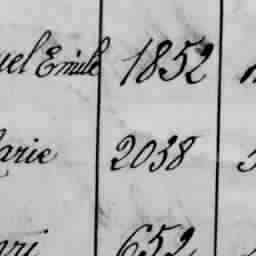 uel Emile 1852
arie 2038
652